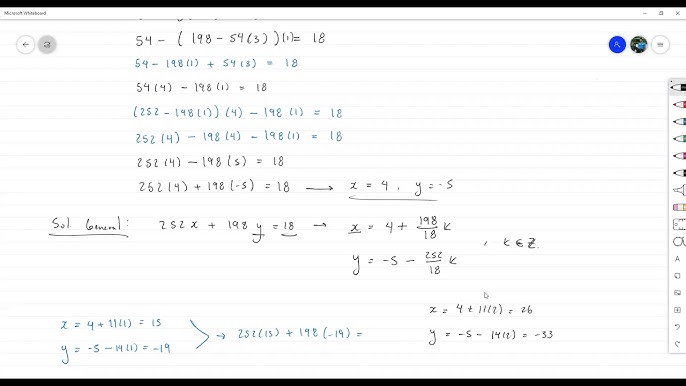 Microsoft Whiteboard
54 - ( 198 - 54(3) )(1) = 18
54 - 198(1) + 54(3) = 18
54(4) - 198(1) = 18
(252 - 198(1)) (4) - 198(1) = 18
252(4) - 198(4) - 198(1) = 18
252(4) - 198(5) = 18
252(4) + 198(-5) = 18 → x = 4 , y = -5
Sol General: 252x + 198y = 18 → x = 4 + 198/18 k
y = -5 - 252/18 k , k ∈ Z.
x = 4 + 11(2) = 26
y = -5 - 14(2) = -33
x = 4 + 11(1) = 15
y = -5 - 14(1) = -19
→ 252(15) + 198(-19) =